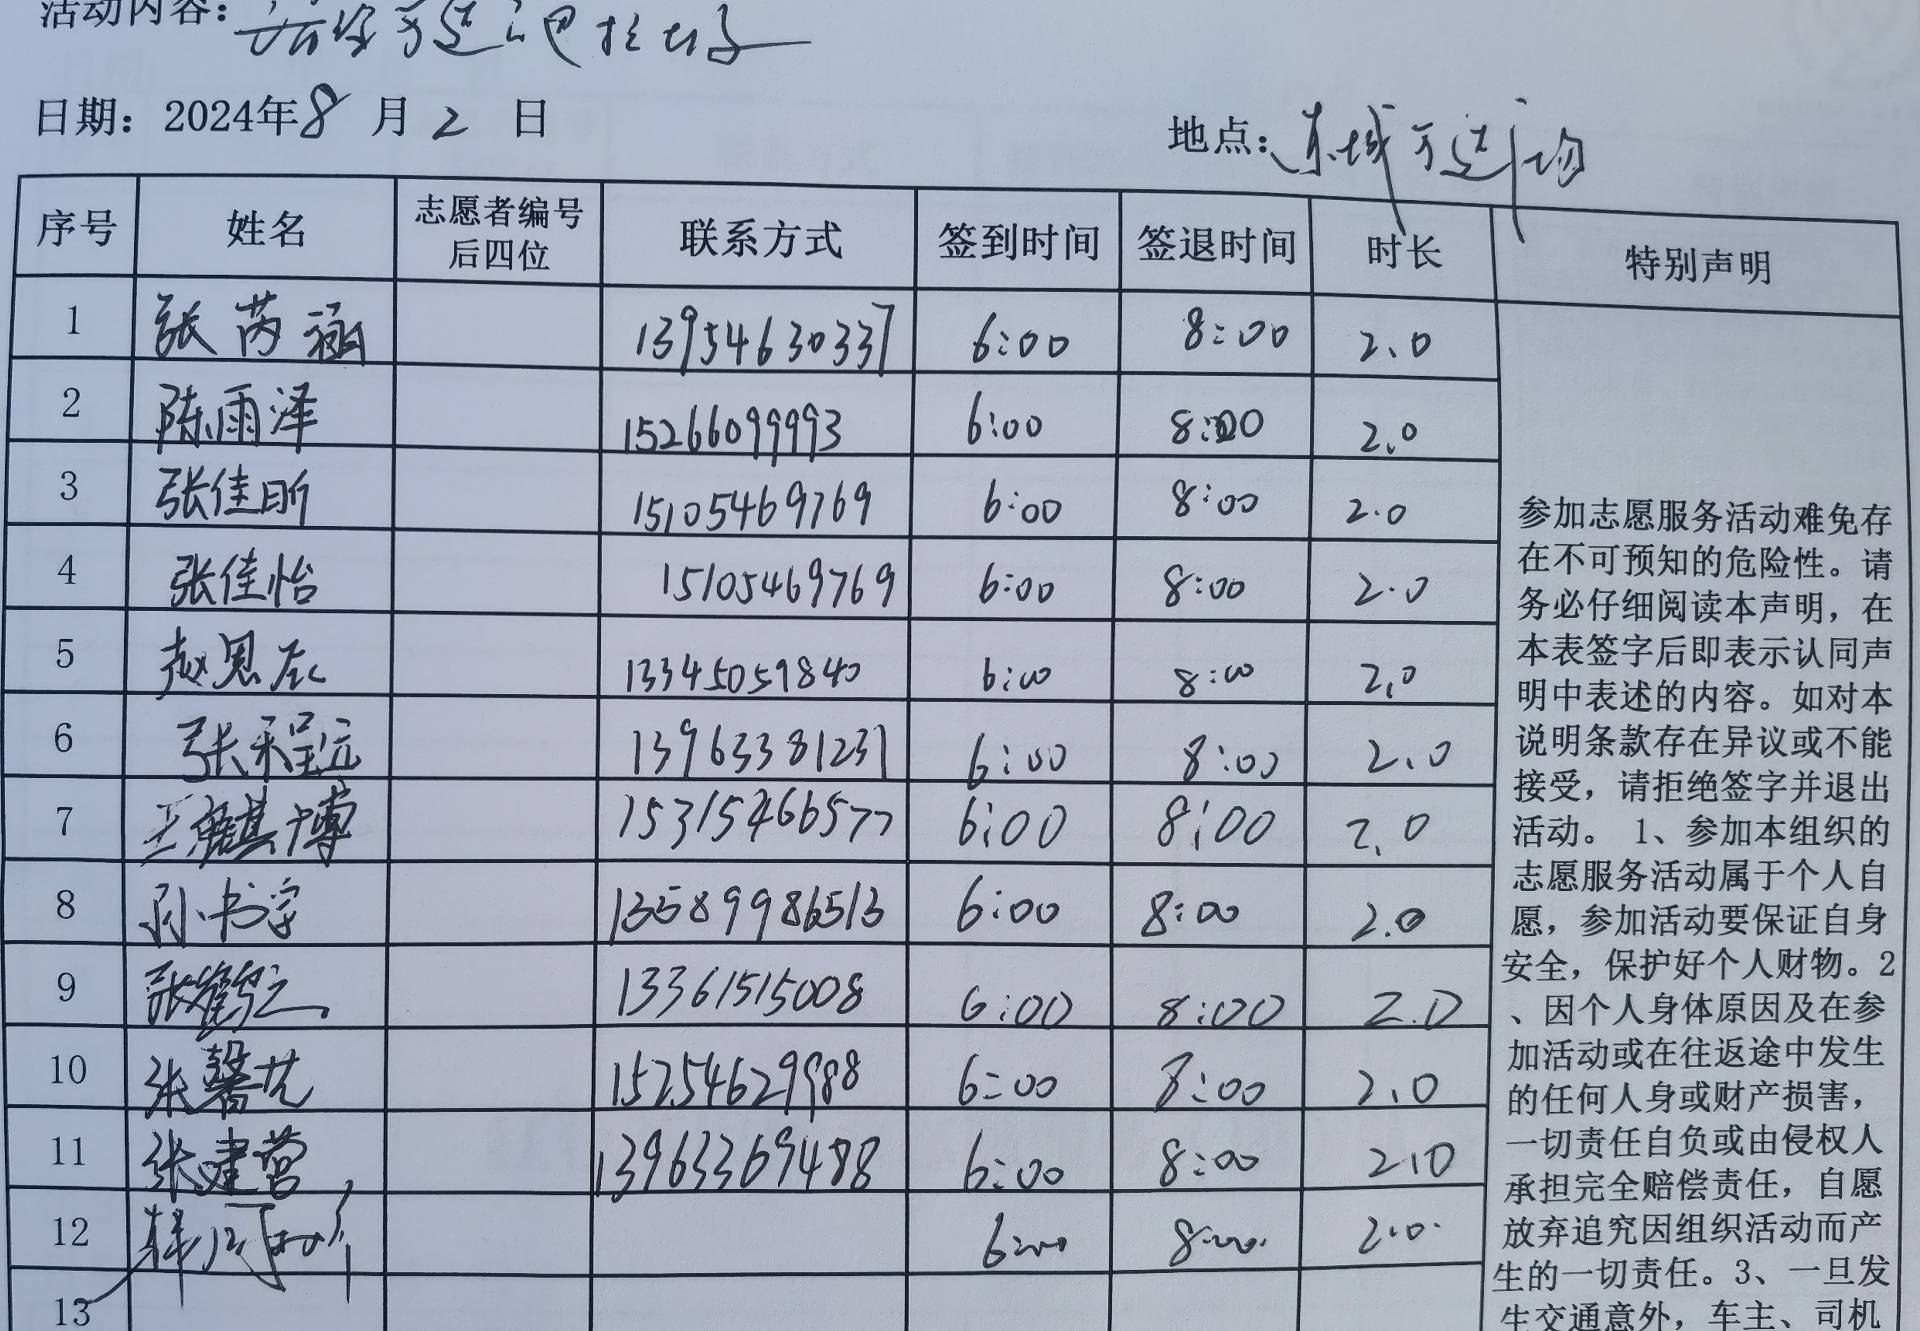 活动内容：
日期：2024年8月2日
地点：东城
序号 姓名 志愿者编号后四位 联系方式 签到时间 签退时间 时长 特别声明
1 张芮涵 13954630337 6:00 8:00 2.0
2 陈雨泽 15266099993 6:00 8:00 2.0
3 张佳昕 15105469769 6:00 8:00 2.0
4 张佳怡 15105469769 6:00 8:00 2.0
5 赵思辰 13345059840 6:00 8:00 2.0
6 张程远 13963381231 6:00 8:00 2.0
7 王麒博 15315466577 6:00 8:00 2.0
8 孙书字 13589986513 6:00 8:00 2.0
9 张鹤之 13361515008 6:00 8:00 2.0
10 张馨艺 15254629988 6:00 8:00 2.0
11 张建营 13963369488 6:00 8:00 2.0
12 韩 6:00 8:00 2.0
13
参加志愿服务活动难免存
在不可预知的危险性。请
务必仔细阅读本声明，在
本表签字后即表示认同声
明中表述的内容。如对本
说明条款存在异议或不能
接受，请拒绝签字并退出
活动。 1、参加本组织的
志愿服务活动属于个人自
愿，参加活动要保证自身
安全，保护好个人财物。2
、因个人身体原因及在参
加活动或在往返途中发生
的任何人身或财产损害，
一切责任自负或由侵权人
承担完全赔偿责任，自愿
放弃追究因组织活动而产
生的一切责任。3、一旦发
生交通意外，车主、司机